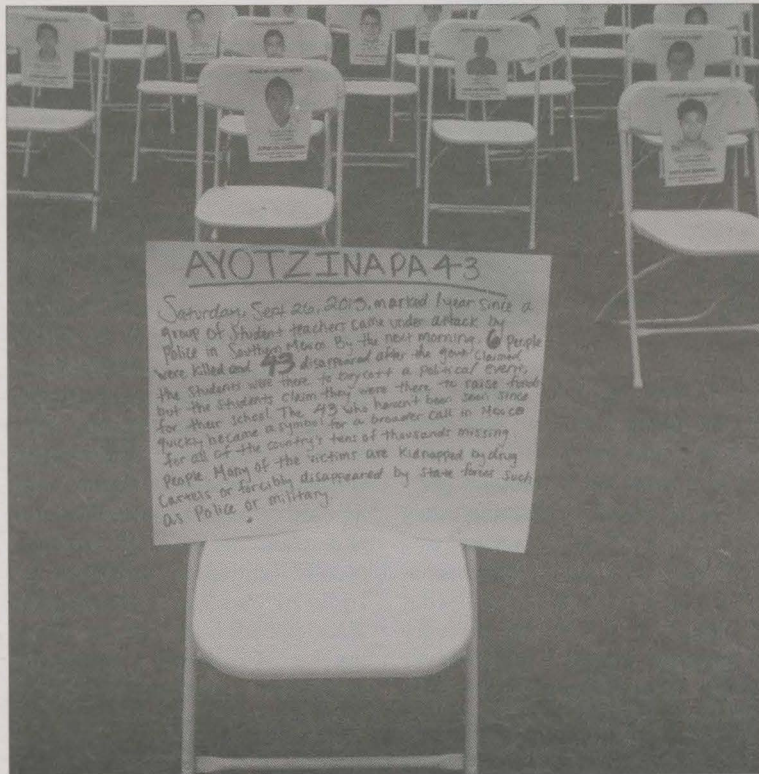 AYOTZINAPA 43
Saturday, Sept 26, 2015, marked 1 year since a
group of Student teachers came under attack by
Police in Southern Mexico By the next morning, 6 People
were killed and 43 disappeared after the govt claimed
the Students were there to boycott a political event,
but the students claim they were there to raise funds
for their school. The 43 who haven't been seen since
quickly became a symbol for a broader call in Mexico
for all of the country's tens of thousands missing
people Many of the victims are kidnapped by drug
Cartels or forcibly disappeared by state forces such
as Police or military.